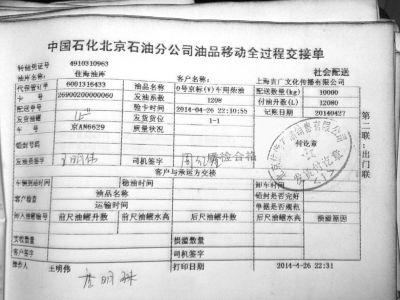 中国石化北京石油分公司油品移动全过程交接单
转储凭证号 4910310963
油库名称: 佳海油库 客户名称: 社会配送
代保管订单 6001316433 油品名称 0号京标(V)车用柴油 配送数量(kg) 10000
卡 号 26900200000060 发油系数 1208 付油升数(L) 12080
配送单号 验卡时间 2014-04-26 22:10:55 记账日期 20140427
发货油罐 发货货位 1-1
车 号 京AM6629 质量状况 付讫章
铅封号码
发油员签字 王明伟 司机签字 质检合格
客户与承运方交接
车辆到油时间 稳油时间 卸车时间
客户检查 油品名称 铅封是否完好
运输时间 单据是否规范
卸入油罐号 前尺油罐升数 前尺油罐水高 后尺油罐升数 后尺油罐水高 损溢原因
实收数量 损溢数量
客户签字 司机签字
操作人 王明伟 打印日期 2014-4-26 22:31
第二联:出门联